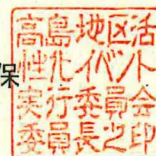 保
高島地区活
性化イベント
実行委員会
委員長之印